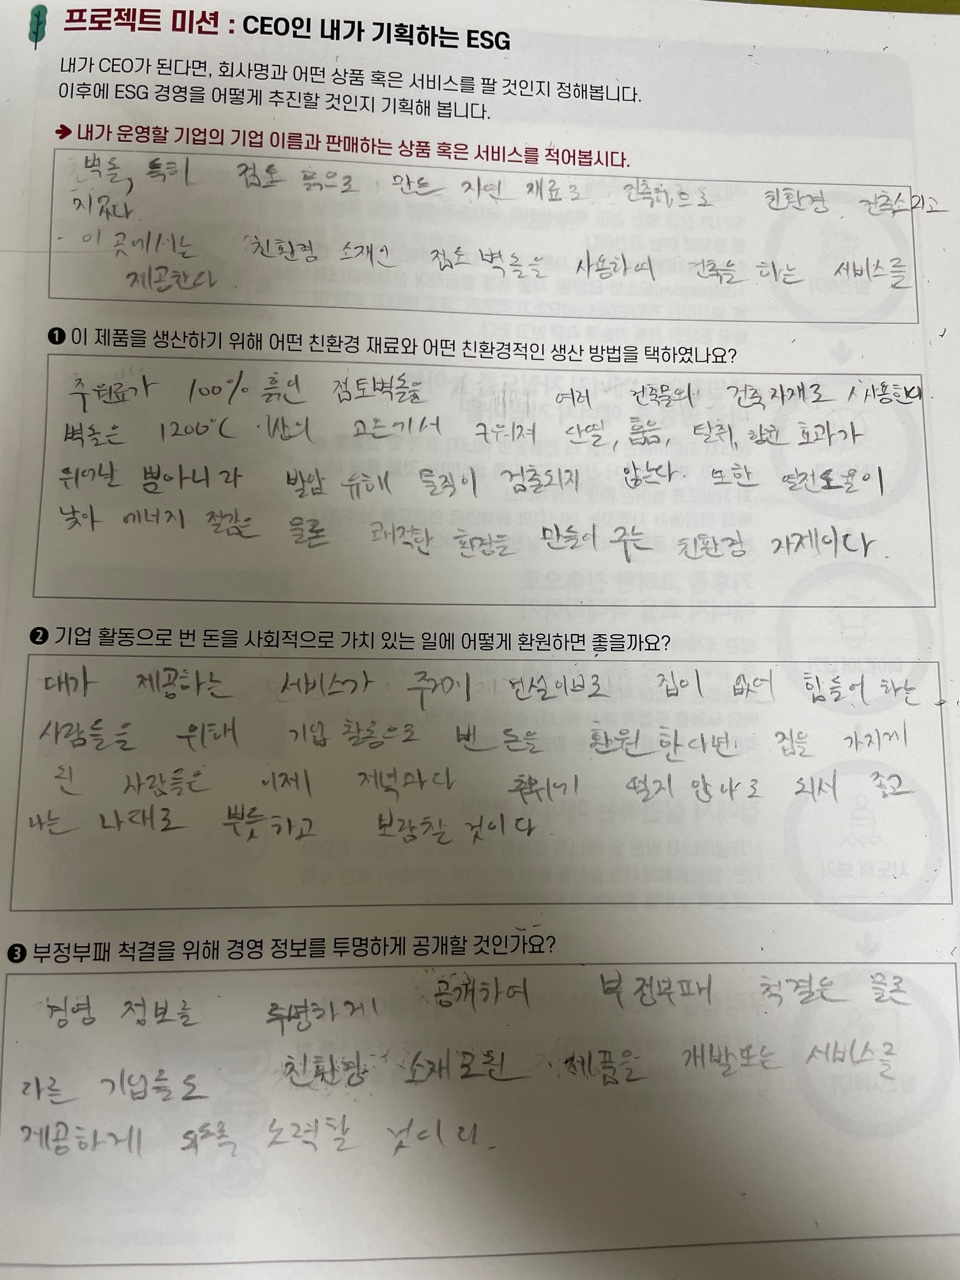 프로젝트 미션 : CEO인 내가 기획하는 ESG
내가 CEO가 된다면, 회사명과 어떤 상품 혹은 서비스를 팔 것인지 정해봅니다.
이후에 ESG 경영을 어떻게 추진할 것인지 기획해 봅니다.
➔ 내가 운영할 기업의 기업 이름과 판매하는 상품 혹은 서비스를 적어봅시다.
벽돌, 특히 점토 흙으로 만든 자연 재료로 친환경 건축소라고
지었다.
- 이 곳에서는 친환경 소재인 점토 벽돌을 사용하여 건축을 하는 서비스를
제공한다
❶ 이 제품을 생산하기 위해 어떤 친환경 재료와 어떤 친환경적인 생산 방법을 택하였나요?
주원료가 100% 흙인 점토벽돌을 여러 건축물의 건축자재로 사용한다.
벽돌은 1200℃ 고온에서 구워져 단열, 흡음, 탈취, 항균 효과가
뛰어날 뿐아니라 발암 유해 물질이 검출되지 않는다. 또한 열전도율이
낮아 에너지 절감은 물론 쾌적한 환경을 만들어 주는 친환경 자제이다.
❷ 기업 활동으로 번 돈을 사회적으로 가치 있는 일에 어떻게 환원하면 좋을까요?
내가 제공하는 서비스가 주거지 건설이므로 집이 없어 힘들어 하는
사람들을 위해 기업 활동으로 번 돈을 환원한다면 집을 가지게
된 사람들은 이제 저녁마다 추위에 떨지 않아도 되서 좋고
나는 나대로 뿌듯하고 보람찰 것이다.
❸ 부정부패 척결을 위해 경영 정보를 투명하게 공개할 것인가요?
경영 정보를 투명하게 공개하여 부정부패 척결은 물론
다른 기업들도 친환경 소재로된 제품을 개발또는 서비스를
제공하게 되도록 노력할 것이다.